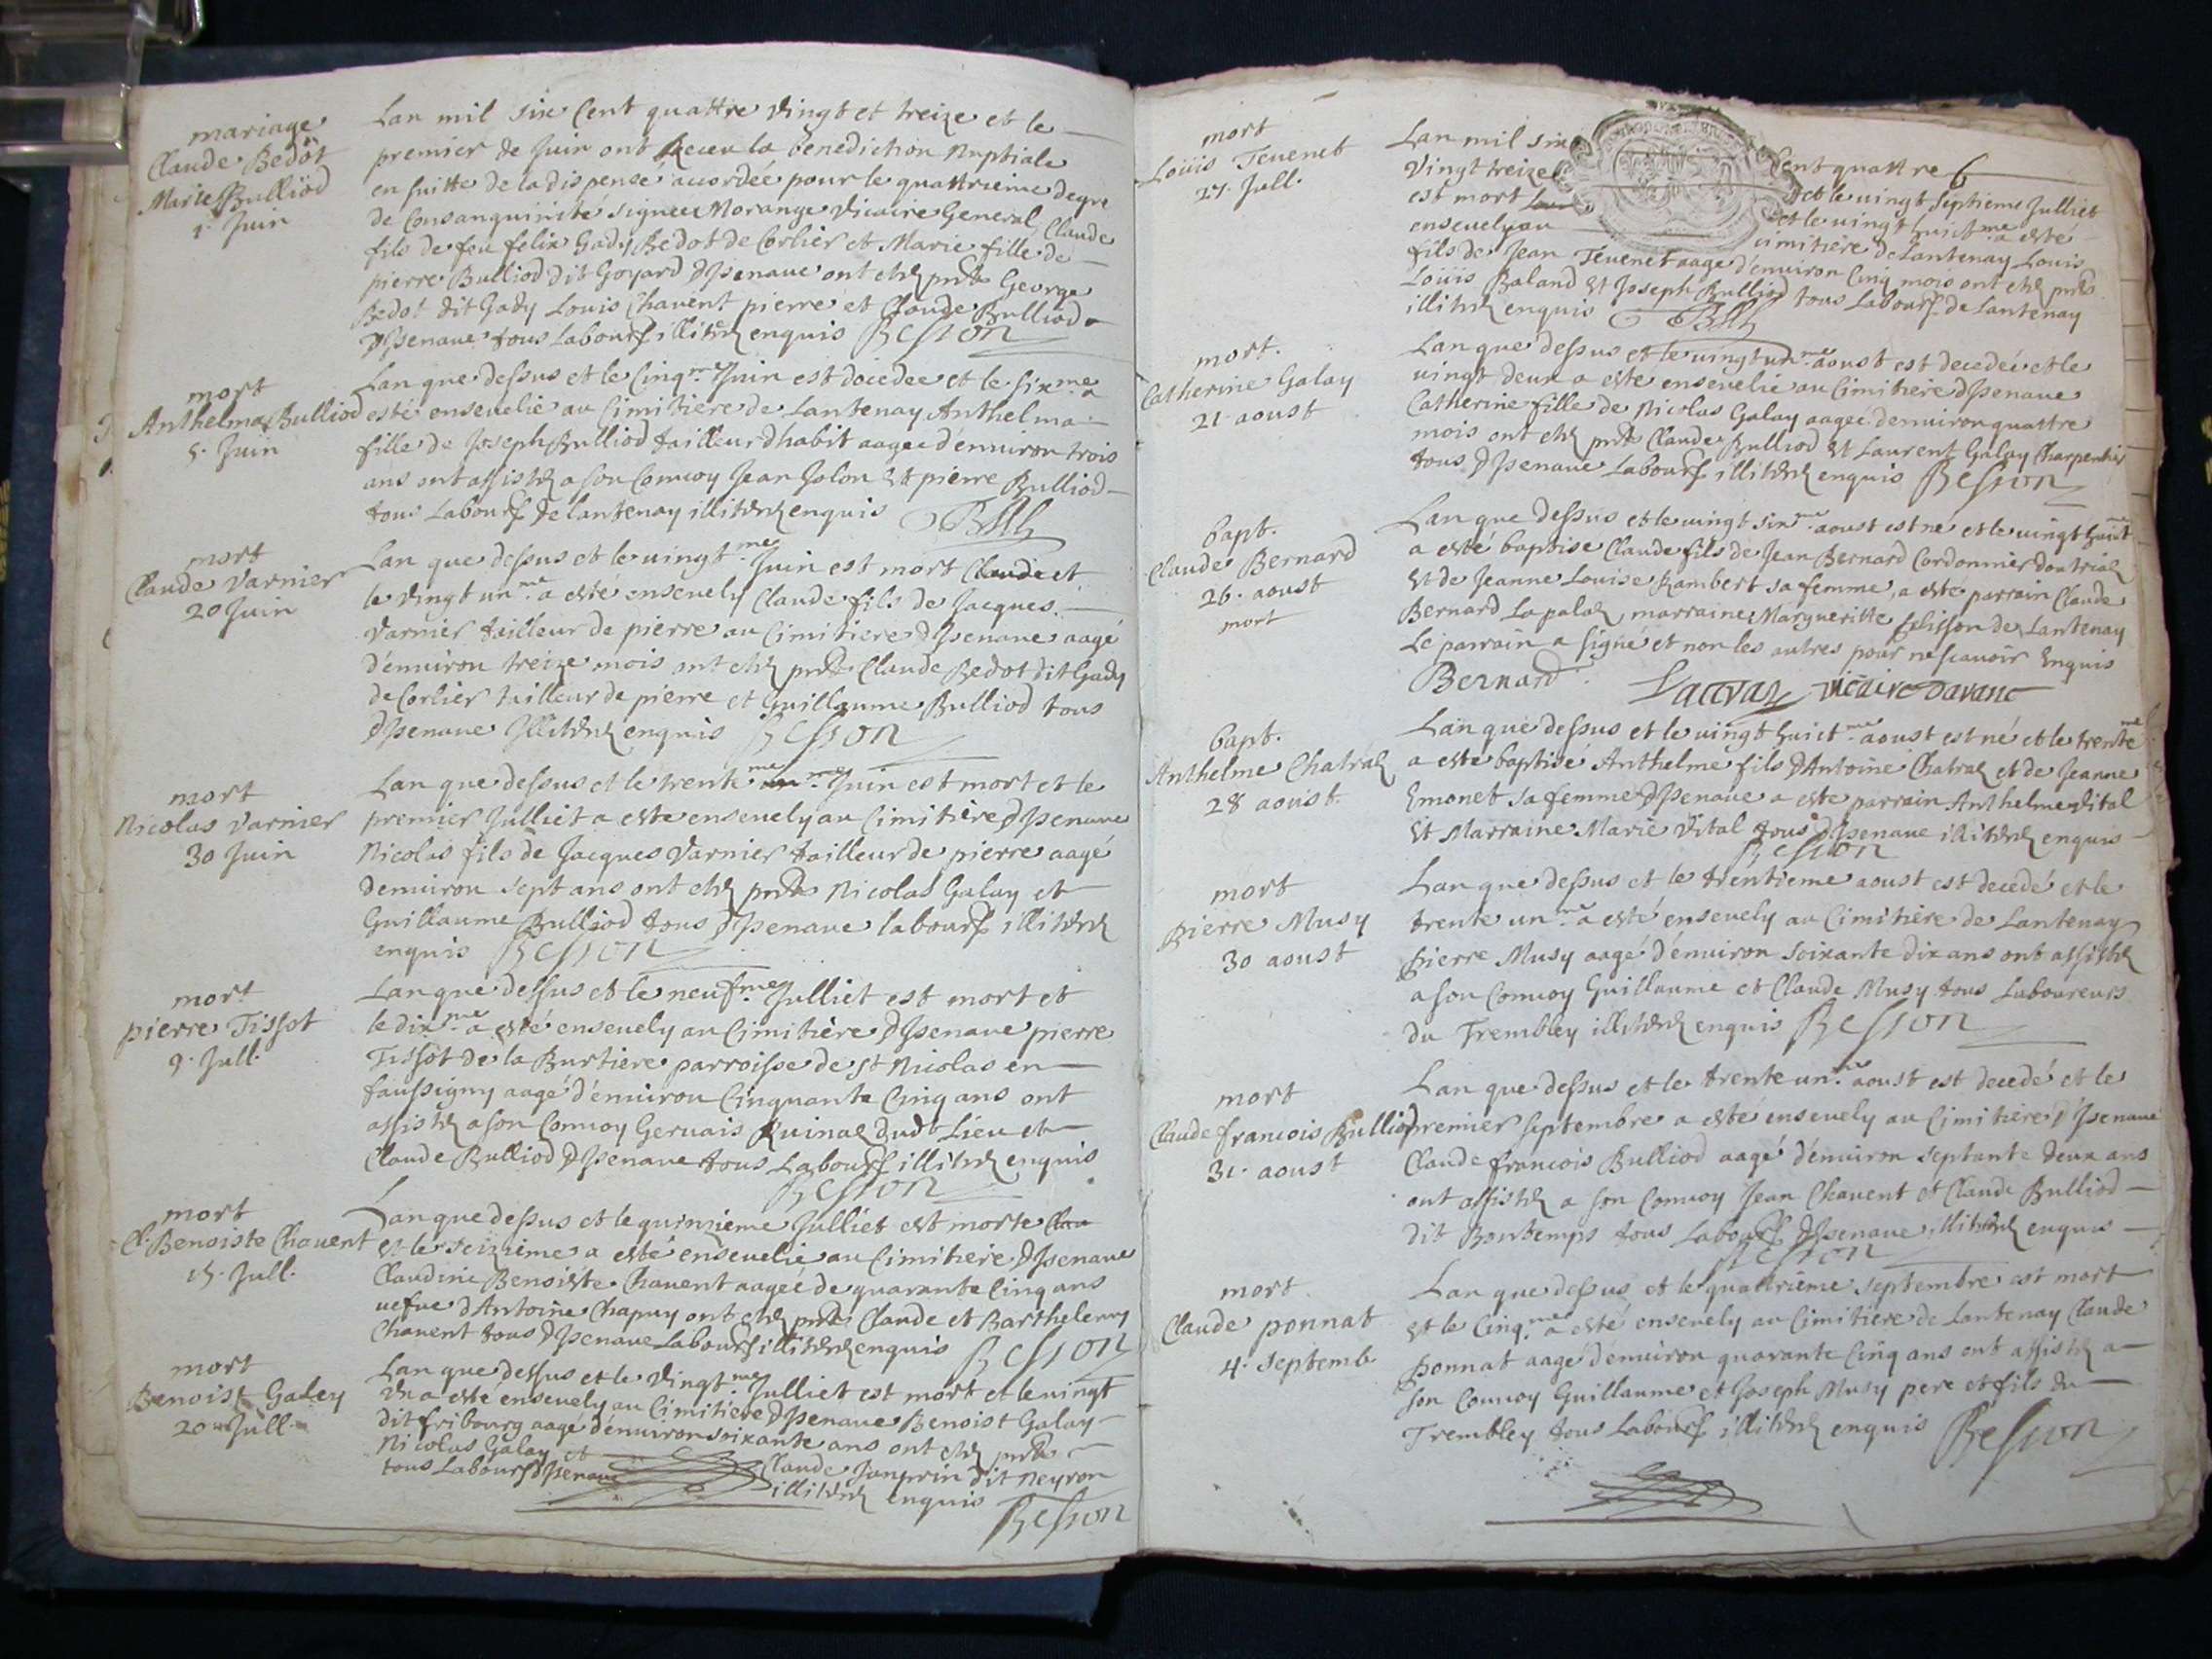 mariage
Claude Bedot
Marie Bulliod
1. Juin
Lan mil six Cent quattre vingt et treize et le
premier de Juin ont Receu la benediction Nuptiale
en suitte de la dispense accordée pour le quattrieme degre
de Consanguinité signée Morange vicaire General, Claude
fils de feu felix Gady Bedot de Corlier et Marie fille de
pierre Bulliod dit Goyard dIsenave ont etez pnts George
Bedot dit Gady Louis Chavent pierre et Claude Bulliod
dIsenave tous Labours illiterez enquis Besson
mort
Anthelma Bulliod
5. Juin
Lan que dessus et le Cinqme Juin est decedee et le sixme a
esté ensevelie au Cimitiere de Lantenay Anthelma
fille de Joseph Bulliod tailleur dhabit aagee d'environ trois
ans ont assistez a son Convoy Jean Jolon Et pierre Bulliod
tous Labours de lantenay illiterez enquis
mort
Claude Varnier
20 Juin
Lan que dessus et le vingtme Juin est mort Claude et
le vingt unme a esté ensevely Claude fils de Jacques
Varnier tailleur de pierre au Cimitiere dIsenave aagé
d'environ treize mois ont etez pnts Claude Bedot dit Gady
de Corlier tailleur de pierre et Guillaume Bulliod tous
dIsenave Illiterez enquis Besson
mort
Nicolas Varnier
30 Juin
Lan que dessus et le trentme Juin est mort et le
premier Julliet a esté ensevely au Cimitière dIsenave
Nicolas fils de Jacques Varnier tailleur de pierre aagé
denviron sept ans ont etez pnts Nicolas Galay et
Guillaume Bulliod tous dIsenave labours illiterez
enquis Besson
mort
pierre Tissot
9. Jull.
Lan que dessus et le neufme Julliet est mort et
le dixme a esté ensevely au Cimitière dIsenave pierre
Tissot de la Burtiere parroisse de St Nicolas en
faussigny aagé d'environ Cinquante Cinq ans ont
assistez a son Convoy Gervais Ruinaz dudt Lieu et
Claude Bulliod dIsenave tous Labours illiterez enquis
Besson
mort
Cl. Benoiste Chavent
15. Jull.
Lan que dessus et le quinzieme Julliet est morte Clau
et le seizieme a esté ensevelie au Cimitiere dIsenave
Claudine Benoiste Chavent aageé de quarante Cinq ans
vefve dAntoine Chapuy ont etez pnts Claude et Barthelemy
Chavent tous dIsenave Labours illiterez enquis Besson
mort
Benoist Galey
20 Jull.
Lan que dessus et le vingtme Julliet est mort et le vingt
Un a esté ensevely au Cimitiere dIsenave Benoist Galay
dit fribourg aagé denviron soixante ans ont etez pnts
Nicolas Galay et Claude Janprin dit Neyron
tous Labours dIsenave illiterez enquis
Besson
mort
Loüis Tevenet
27. Jull.
Lan mil six Cent quattre
Vingt treize et le vingt septieme Julliet
est mort et le vingt huictme a esté
ensevely au cimitière de Lantenay Louis
fils de Jean Tevenet aage d'environ Cinq mois ont etez pnts
Loüis Baland Et Joseph Bulliod tous Labours de Lantenay
illiterez enquis
mort.
Catherine Galay
21. aoust
Lan que dessus et le vingt unme aoust est decedeé et le
vingt deux a este ensevelie au Cimitiere dIsenave
Catherine fille de Nicolas Galay aagee denviron quattre
mois ont etez pnts Claude Bulliod Et Laurent Galay Charpentier
tous dIsenave Labours illiterez enquis Besson
bapt.
Claude Bernard
26. aoust
mort
Lan que dessus et le vingt sixme aoust est né et le vingt huict
a esté baptise Claude fils de Jean Bernard Cordonnier doutriaz
Et de Jeanne Louise Rambert sa femme, a esté parrain Claude
Bernard Lapalaz, marraine Margueritte felisson de Lantenay
Le parrain a signé et non les autres pour ne scavoir Enquis
Bernard vicaire Davanc
bapt.
Anthelme Chatraz
28 aoust.
Lan que dessus et le vingt huictme aoust est né et le trentme
a esté baptisé Anthelme fils dAntoine Chatraz et de Jeanne
Emonet sa femme dIsenave a esté parrain Anthelme Vital
Et Marraine Marie Vital tous dIsenave illiterez enquis
Besson
mort
Pierre Musy
30 aoust
Lan que dessus et le trentieme aoust est decedé et le
trente unme a esté ensevely au Cimitière de Lantenay
Pierre Musy aagé d'environ soixante dix ans ont assistez
a son Convoy Guillaume et Claude Musy tous Laboureurs
du Trembley illiterez enquis Besson
mort
Claude francois Bulliod
31. aoust
Lan que dessus et le trente unme aoust est decedé et le
premier septembre a esté ensevely au Cimitière d'Isenave
Claude francois Bulliod aagé d'environ septante deux ans
ont assistez a son Convoy Jean Chavent et Claude Bulliod
dit Bontemps tous Labours dIsenave illiterez enquis
Besson
mort
Claude ponnat
4. septemb
Lan que dessus et le quattrieme septembre est mort
Et le Cinqme a esté ensevely au Cimitiere de Lantenay Claude
ponnat aagé denviron quarante Cinq ans ont assistez a
son Convoy Guillaume et Joseph Musy pere et fils du
Trembley tous Labours illiterez enquis Besson